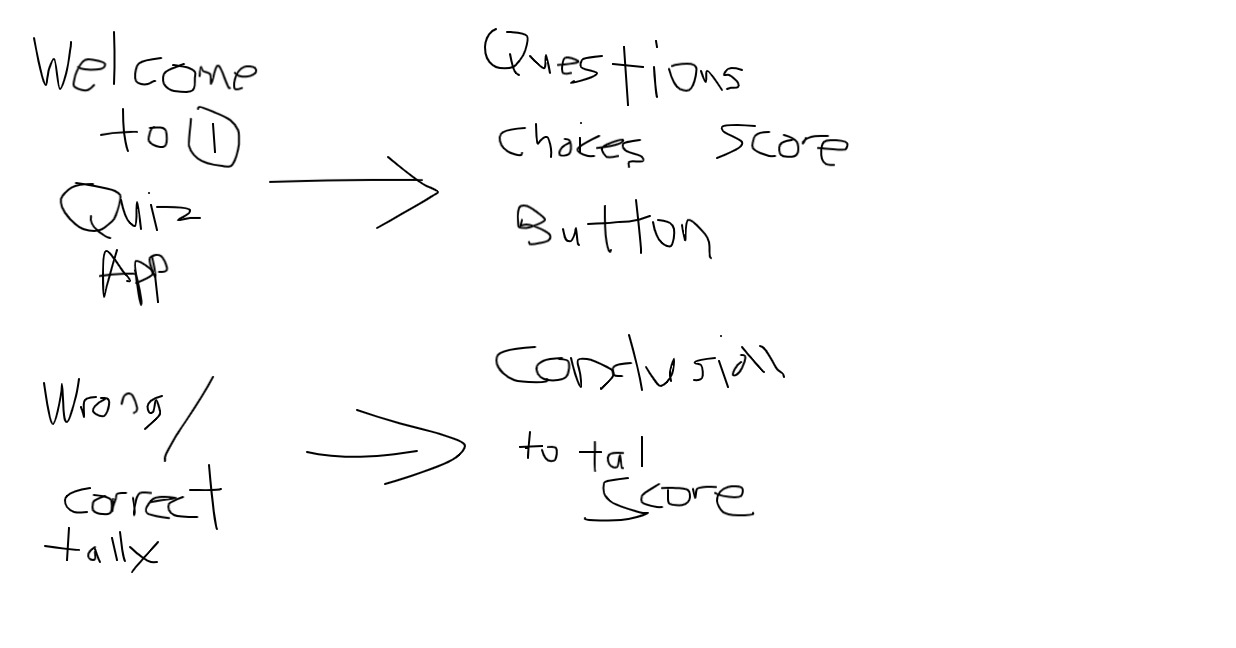 Welcome
to ①
Quiz
App
Questions
Choices Score
Button
Wrong/
correct
tally
Conclusion
total
Score